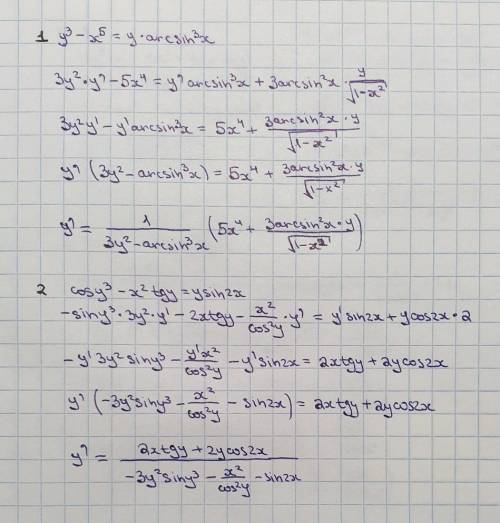 1 y³ - x⁵ = y · arcsin³x
3y² · y' - 5x⁴ = y' arcsin³x + 3arcsin²x · y/√(1-x²)
3y²y' - y'arcsin³x = 5x⁴ + (3arcsin²x · y)/√(1-x²)
y' (3y² - arcsin³x) = 5x⁴ + (3arcsin²x · y)/√(1-x²)
y' = 1/(3y² - arcsin³x) (5x⁴ + (3arcsin²x · y)/√(1-x²))
2 cosy³ - x²tgy = ysin2x
-siny³ · 3y² · y' - 2xtgy - x²/cos²y · y' = y'sin2x + ycos2x · 2
-y'3y²siny³ - y'x²/cos²y - y'sin2x = 2xtgy + 2ycos2x
y' (-3y²siny³ - x²/cos²y - sin2x) = 2xtgy + 2ycos2x
y' = (2xtgy + 2ycos2x)/(-3y²siny³ - x²/cos²y - sin2x)